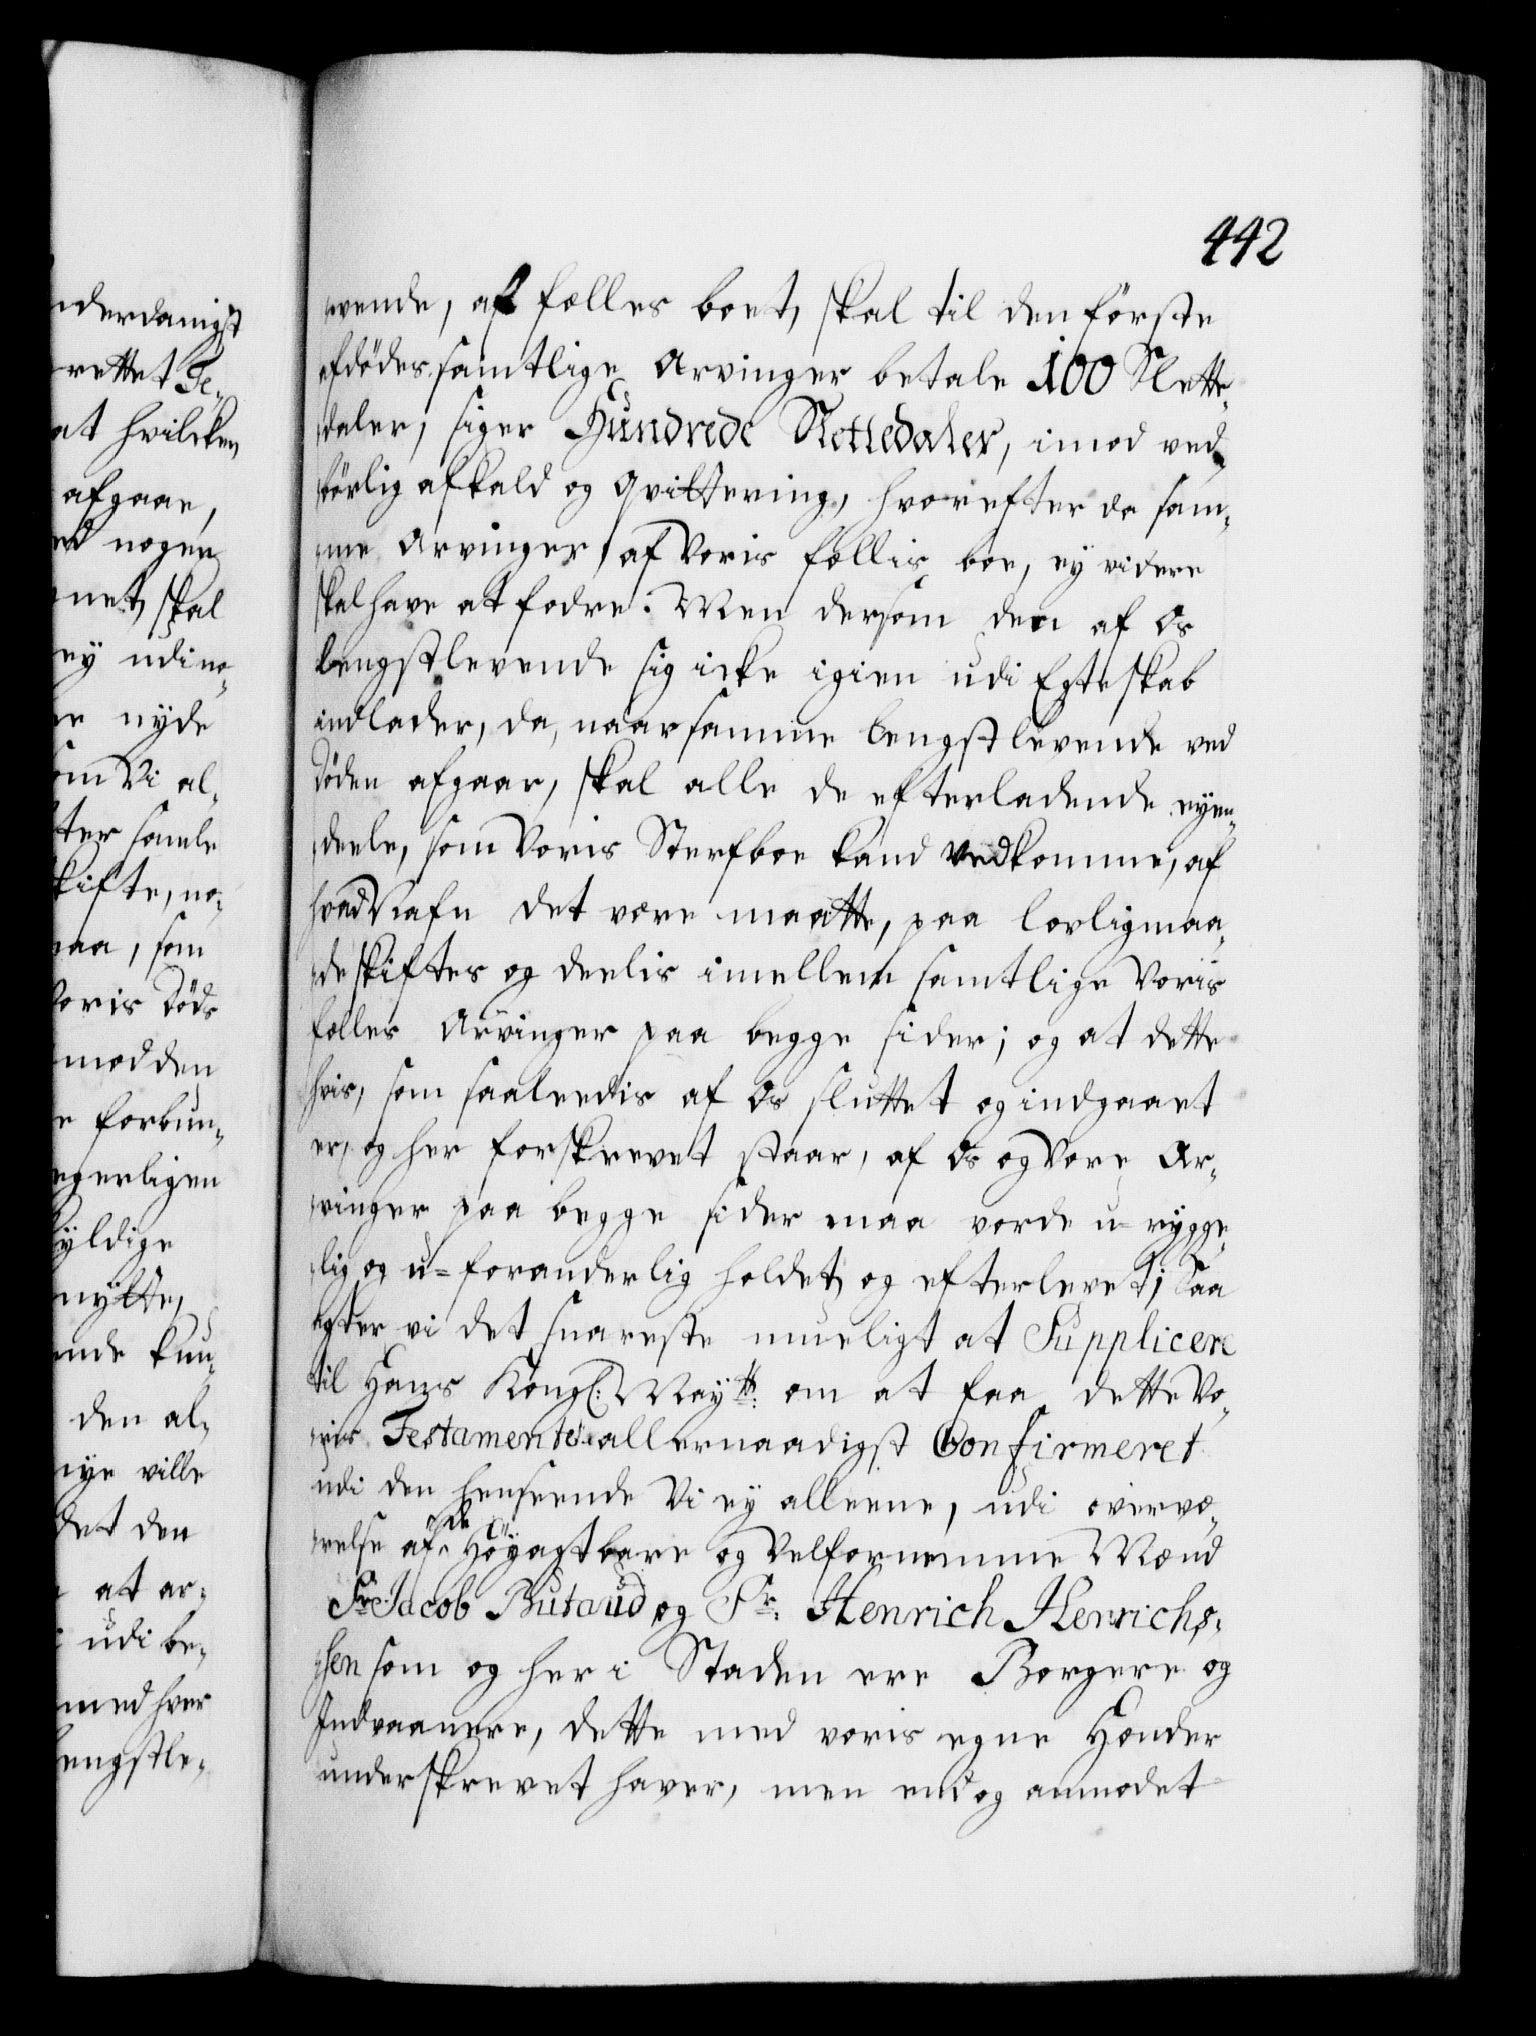 442
vende, af fælles boet, skal til den förste
afdödes samtlige Arvinger betale 100 Slette-
daler, siger Hundrede Slettedaler, imod ved-
börlig afkald og Qvittering, hvorefter da sam-
me Arvinger af Voris fællis boe, ey videre
skal have at fodre. Men dersom den af Os
lengstlevende sig icke igien udi Egteskab
indlader, da, naar samme lengstlevende ved
Döden afgaar, skal alle de efterladende eyen-
deele, som Voris Sterfboe kand vedkomme, af
hvad Nafn det være maatte, paa lovligmaa-
de skiftes og deelis imellem samtlige Voris
fælles Arvinger paa begge sider; og at dette
hvis, som saaleedis af Os sluttet og indgaaet
er, og her forskrevet staar, af Os og Vore Ar-
vinger paa begge sider maa vorde u-rygge-
lig og u=foranderlig holdet og efterlevet; Saa
agter vi det snareste mueligt at Supplicere
til Hans Kongl: Mayts: om at faa dette Vo-
ris Testamente allernaadigst Confirmeret
udi den henseende Vi ey alleene, udi overvæ-
relse af de Höyagtbare og Velfornemme Mænd
Sr. Jacob Butaud og Sr. Henrich Henrichs-
sen som og her i Staden ere Borgere og
Indvaanere, dette med voris egne Hænder
underskrevet haver, men endog anmodet
nderdanigst
rettet Te-
at hvilcken
afgaar,
ed nogen
net, skal
ey udi no-
er nyde
om Vi al-
ter samle
kifte, no-
maa, som
Voris Döds
mod den
e forbun-
egerligen
yldige
nytte,
nde kun-
den al-
nye ville
det den
at ar-
udi be-
med hver
engstle-